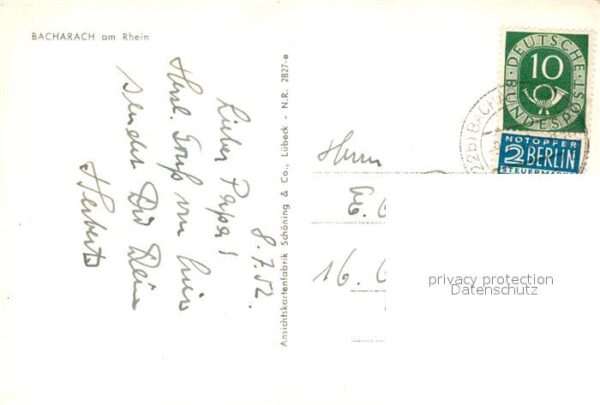 BACHARACH am Rhein
8.7.52.
Lieber Papa!
Herzl. Gruß von hier
sendet Dir Dein
Herbert
Ansichtskartenfabrik Schöning & Co., Lübeck - N.R. 2827-e
DEUTSCHE
10
BUNDESPOST
(22b) BACH
NOTOPFER
2 BERLIN
STEUERMARKE
Herrn
16.
privacy protection
Datenschutz